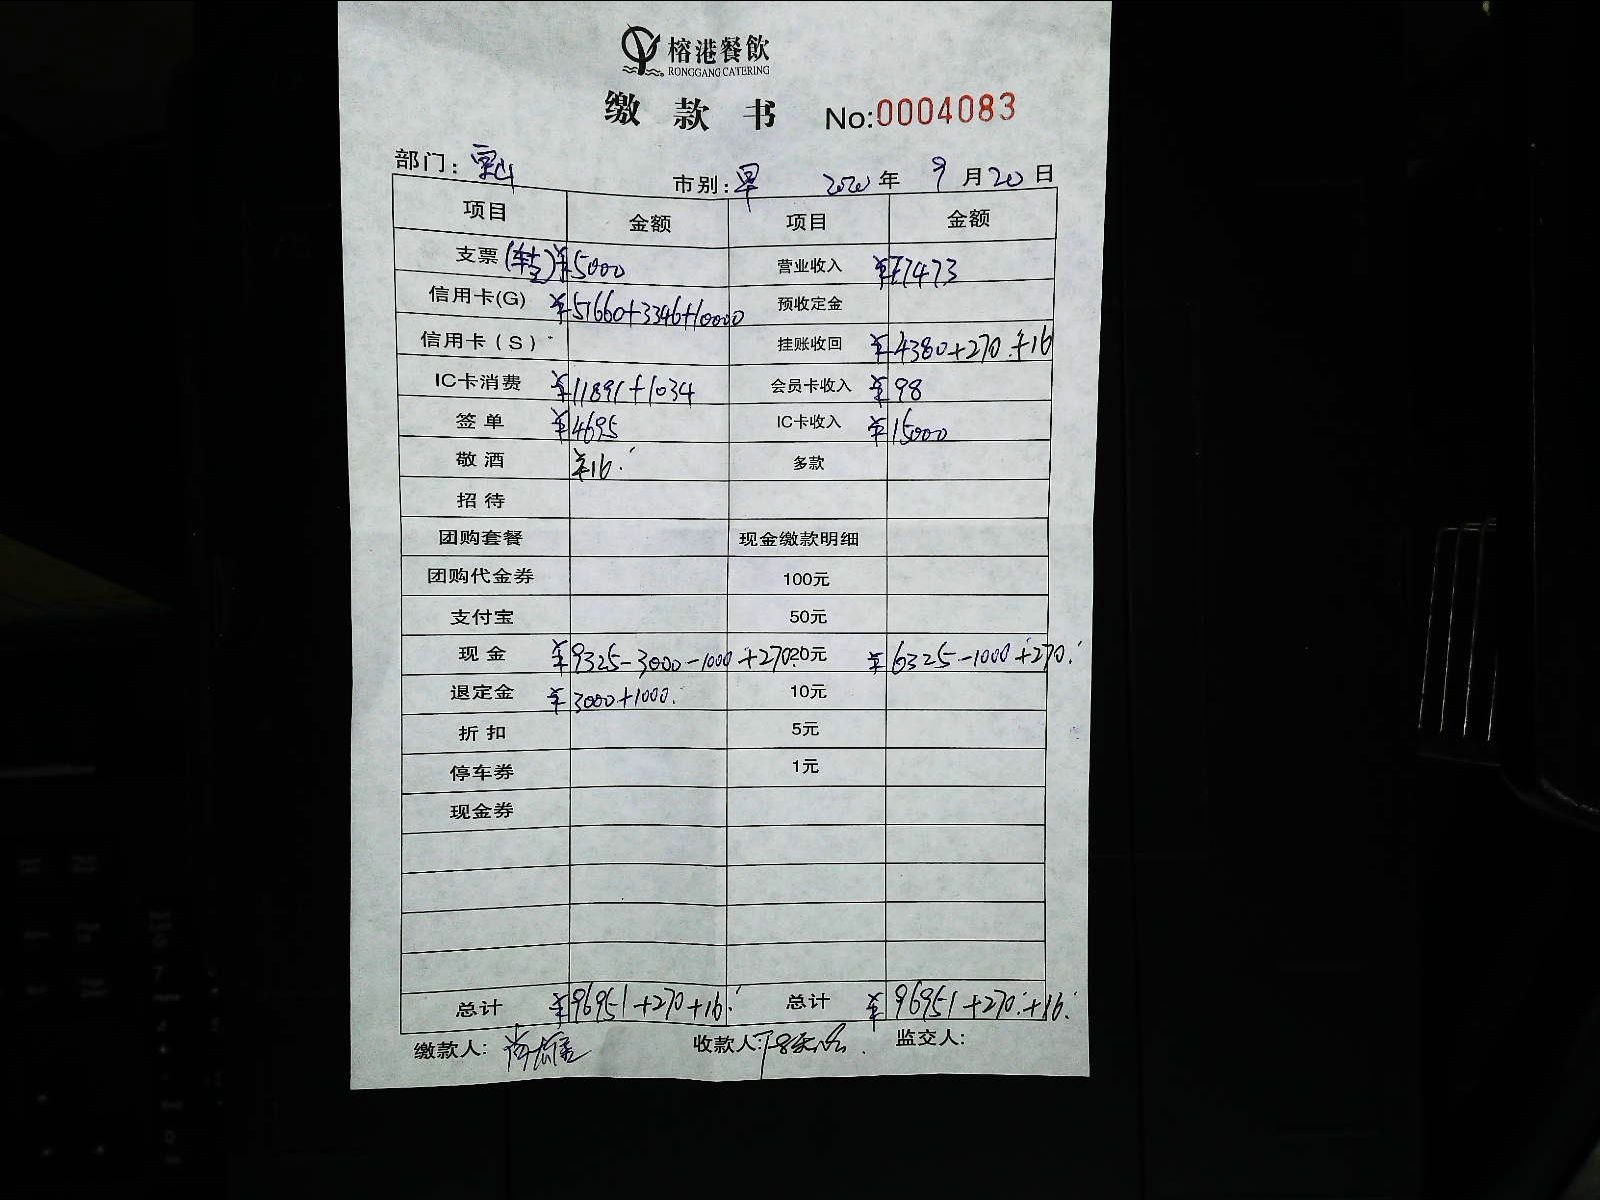 榕港餐飲
RONGGANG CATERING
缴款书 No:0004083
部门: 宝山 市别: 早 2020年 9月20日
项目 金额 项目 金额
支票 ¥5000 营业收入 ¥77473
信用卡(G) ¥51660+3346+10000 预收定金
信用卡(S) 挂账收回 ¥4380+270.+16
IC卡消费 ¥11891+1034 会员卡收入 ¥98
签单 ¥4695 IC卡收入 ¥15000
敬酒 ¥16. 多款
招待
团购套餐 现金缴款明细
团购代金券 100元
支付宝 50元
现金 ¥9325-3000-1000+270. 20元 ¥6325-1000+270.
退定金 ¥3000+1000. 10元
折扣 5元
停车券 1元
现金券
总计 ¥96951+270+16. 总计 ¥96951+270.+16.
缴款人: 收款人: 监交人: